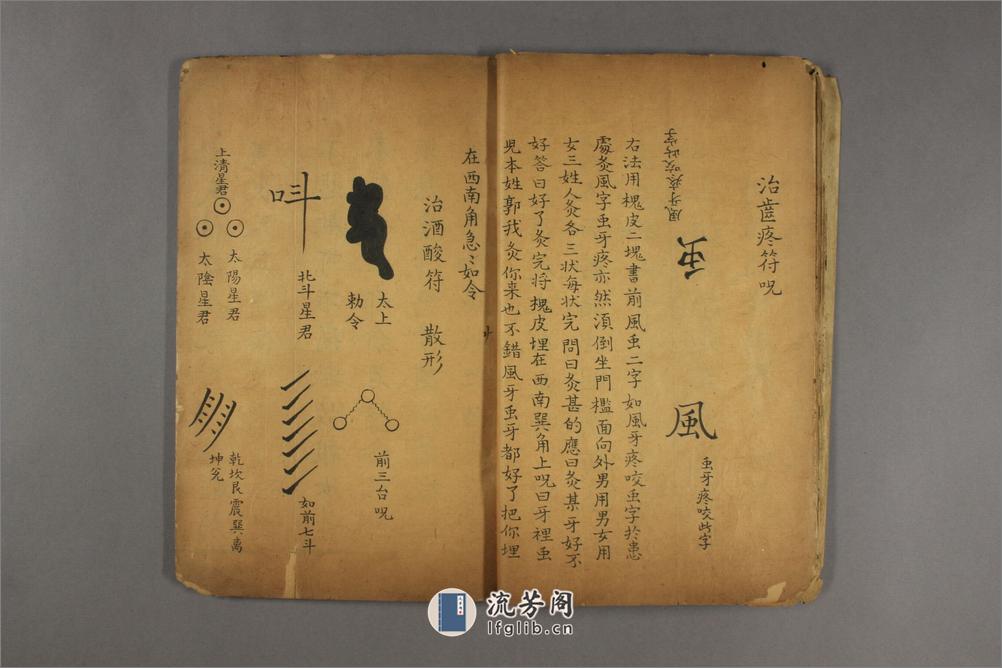 治齒疼符呪
虫 風牙疼咬此字
風 虫牙疼咬此字
右法用槐皮二塊書前風虫二字如風牙疼咬虫字於患
處灸風字虫牙疼亦然須倒坐門檻面向外男用男女用
女三姓人灸各三状每状完問曰灸甚的應曰灸某牙好不
好答曰好了灸完將槐皮埋在西南巽角上呪曰牙裡虫
児本姓郭我灸你来也不錯風牙虫牙都好了把你埋
在西南角急〻如令
治酒酸符 散形
太上
勅令
前三台呪
北斗星君
如前七斗
上清星君
太陽星君
太陰星君
乾坎艮震巽离
坤兌
流芳阁
lfglib.cn